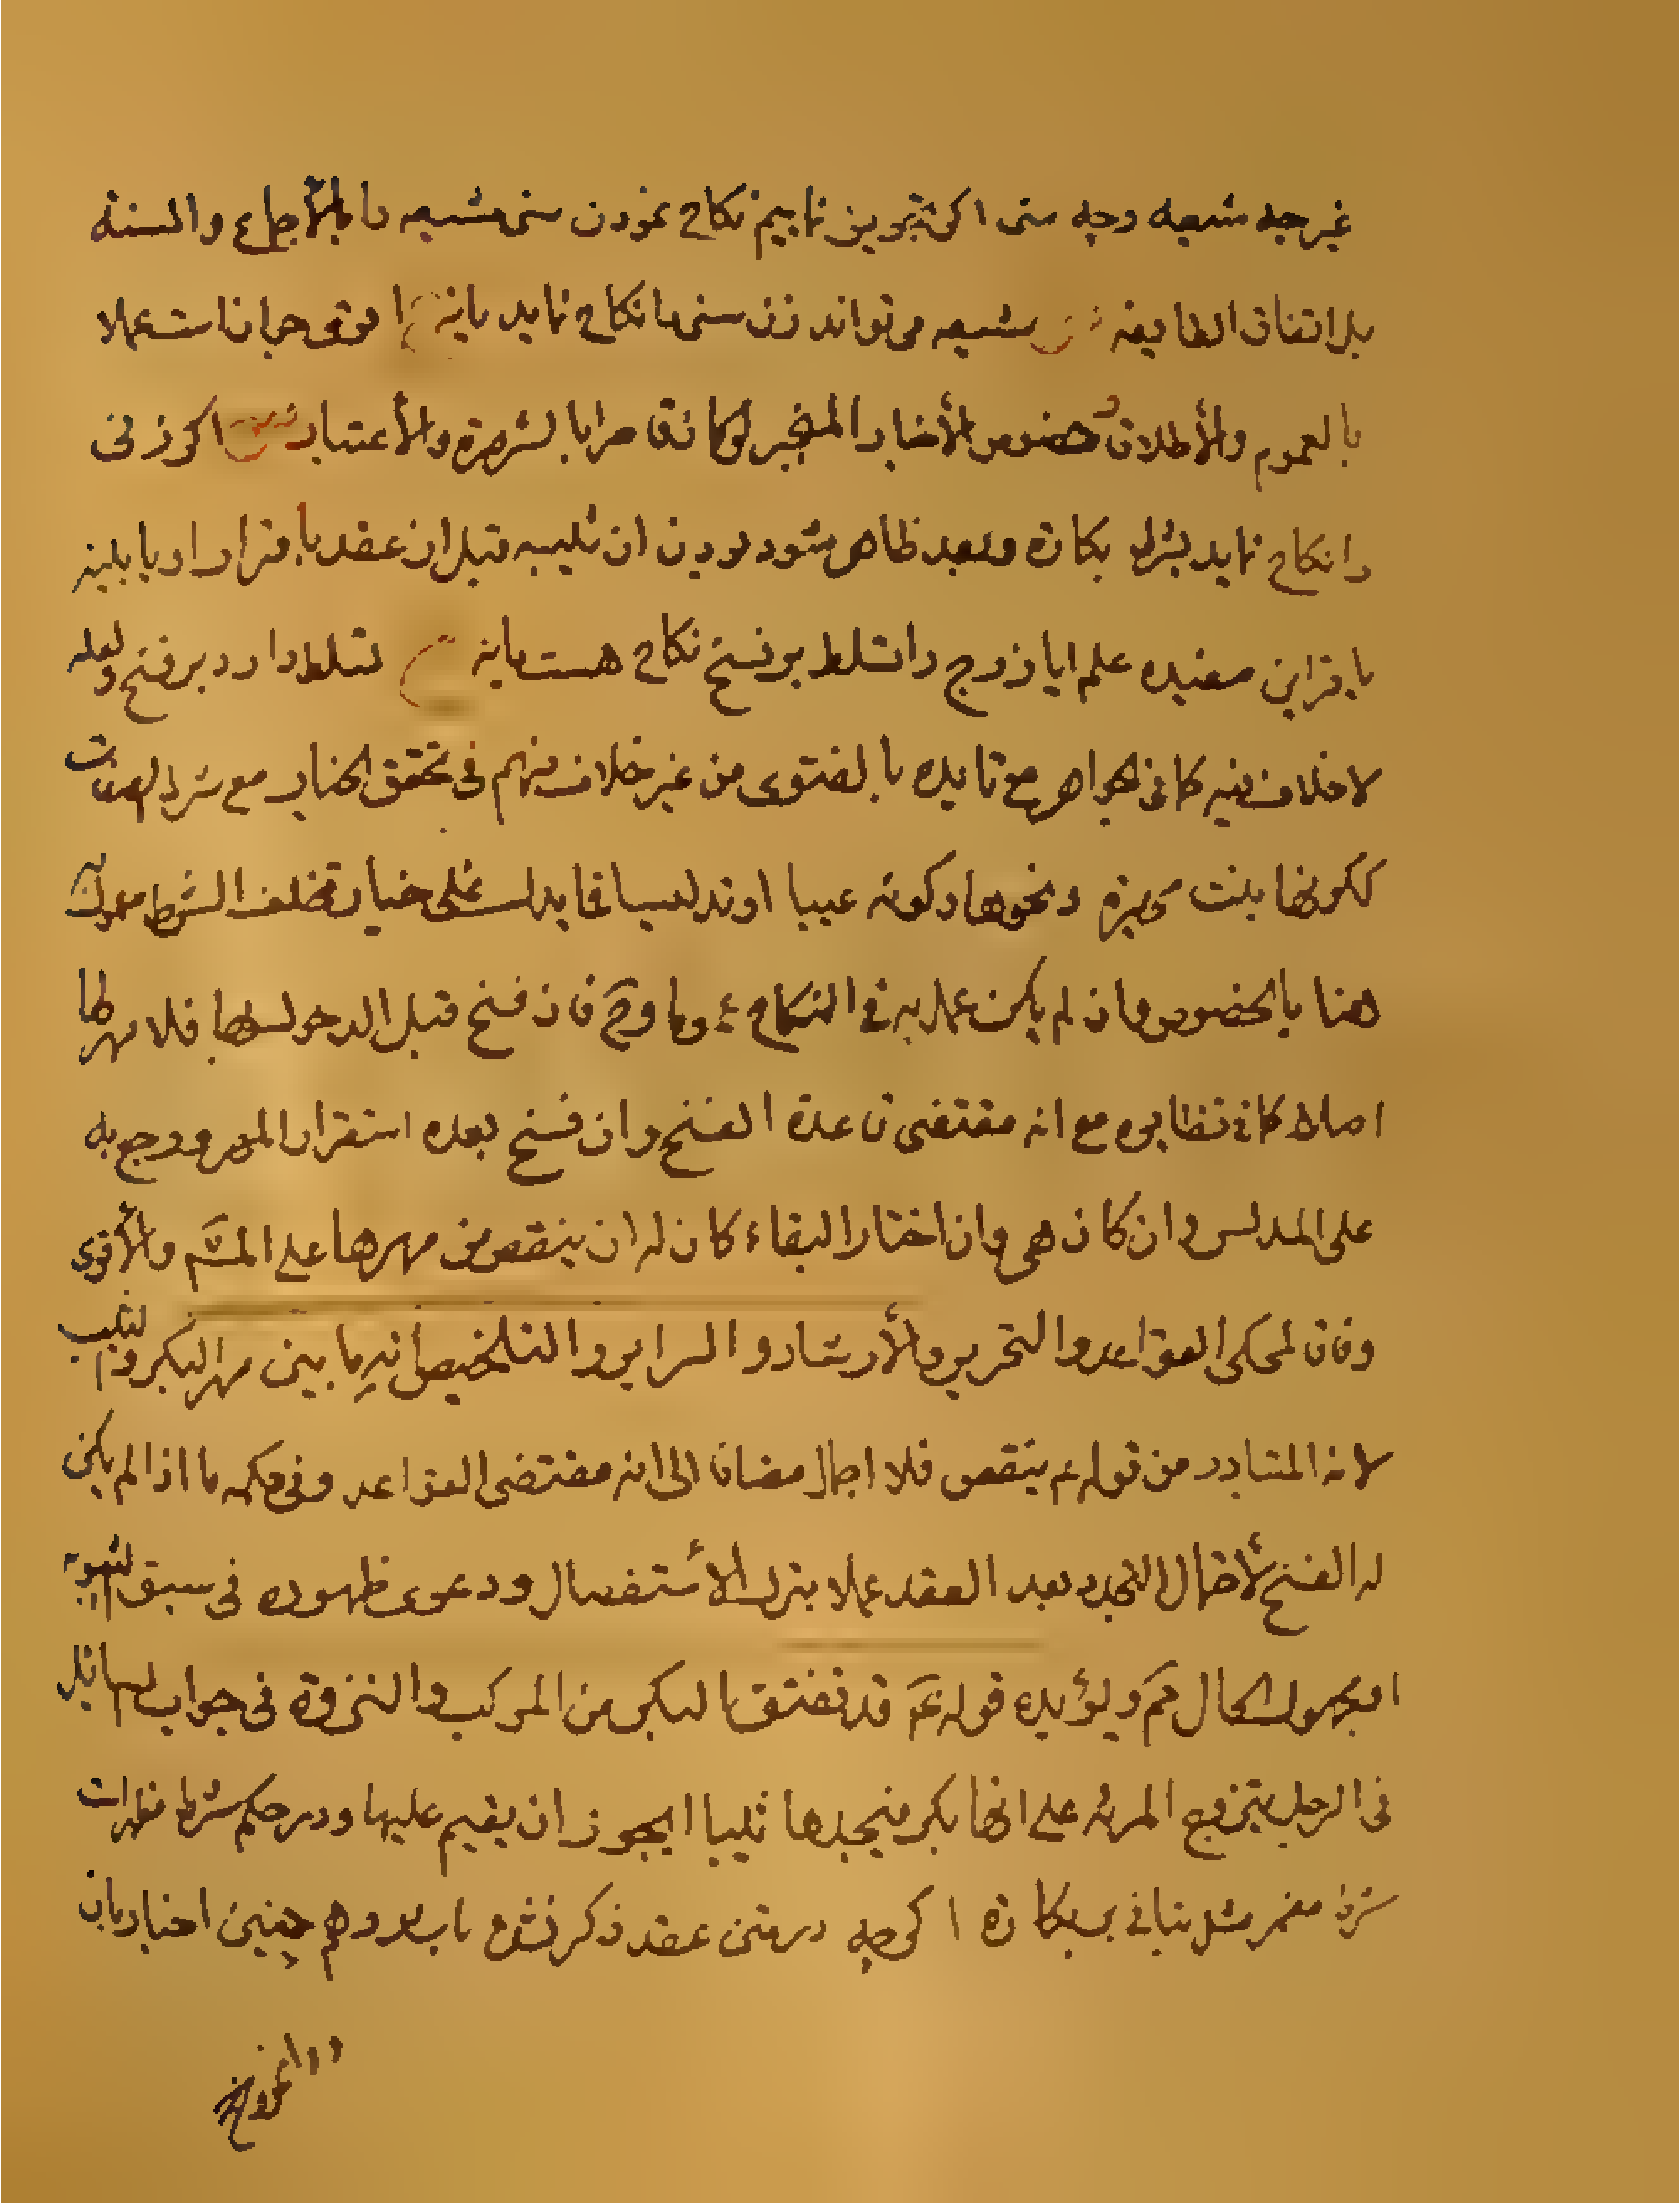 غیر چه شیعه و چه سنی اگر تجویز نماییم نکاح نمودن سنی شیعه را بالأجماع والسنة
بل اتفاق الطایفه س شیعه می تواند زن سنی را نکاح نماید یا نه ج اقوی جواز است عملا
بالعموم والأطلاق وخصوص الأخبار المنجبر لو کان قاصرا بالشهرة والأعتبار س اگر زنی
را نکاح نماید بشرط بکارة و بعد ظاهر شود بودن آن ثیبه قبل از عقد باقرار او یا بلینه
یا قراین مفیده علم ایا زوج را تسلط بر فسخ نکاح هست یا نه ج تسلط دارد بر فسخ ولعله
لا خلاف فیه کما فی الجواهر مع تایده بالفتوی من غیر خلاف منهم فی تحقق الخیار مع شرط الصفات
ککونها بنت مهیرة ونحوها وکونه عیبا او تدلیسا فایدلس علی خیار تخلف الشرط معمول به
هنا بالخصوص وان لم یکن عمل به فی النکاح عموما وح فان فسخ قبل الدخول بها فلا مهر لها
اصلا کما فی نظایره مع انه مقتضی قاعدة الفسخ وان فسخ بعده استقر المهر ورجع به
علی المدلس وان کان هی وان اختار البقاء کان له ان ینقص من مهرها علی المشهم والأقوی
وفاق لمحکی القواعد والتحریر والأرشاد والسرایر والتلخیص انه ما بین مهر البکر والثیب
لانه المتبادر من قوله ع ینقص فلا اجمال مضافا الی انه مقتضی القواعد وفی حکمه ما اذا لم یکن
له الفسخ لأحتمال التجدد بعد العقد عملا بترك الأستفصال ودعوی ظهوره فی سبق الثیوبه
او مجهول الحال مم ویؤیده قوله ع قد تفتق البکر من المرکب والنزوة فی جواب السائل
فی الرجل یتزوج المرئه علی انها بکر فیجدها ثیبا ایجوز ان یقیم علیها ودر حکم شرط مذکور است
شرط مضمر مثل تبانی بر بکارة اگر چه در متن عقد ذکر نشود باب و هم چنین اخبار بان